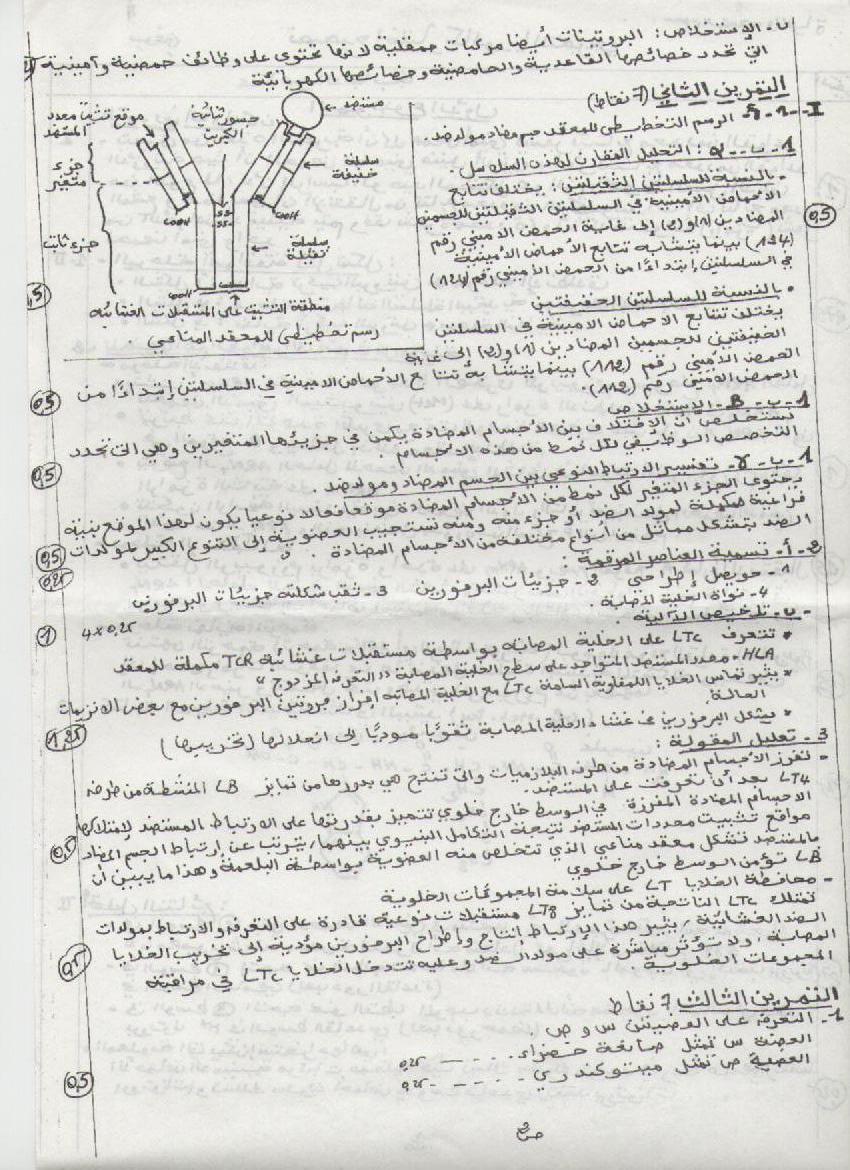 ب - الإستخلاص: البروتينات أيضا مركبات حمقلية لأنها تحتوي على وظائف حمضية وأمينية
التي تحدد خصائصها القاعدية والحامضية وخصائصها الكهربائية
التمرين الثاني (7 نقاط)
I - 1 - أ - الرسم التخطيطي للمعقد جسم مضاد مولد ضد.
مستضد
جسور ثنائية الكبريت
موقع تثبيت محدد المستضد
سلسلة خفيفة
جزء متغير
جزء ثابت
سلسلة ثقيلة
COOH
COOH
COOH
SS
SS
منطقة التثبيت على المستقبلات الغشائية
رسم تخطيطي للمعقد المناعي
1 - ب - α : التحليل المقارن لهذه السلاسل.
- بالنسبة للسلسلتين الثقيلتين: يختلف تتابع
الأحماض الأمينية في السلسلتين الثقيلتين للجسمين
المضادين (1) و(2) إلى غاية الحمض الأميني رقم
(124) بينما يتشابه تتابع الأحماض الأمينية
في السلسلتين إبتداءًا من الحمض الأميني رقم (124)
0,5
• بالنسبة للسلسلتين الخفيفتين
يختلف تتابع الأحماض الأمينية في السلسلتين
الخفيفتين للجسمين المضادين (1) و(2) إلى غاية
الحمض الأميني رقم (112) بينما يتشابه تتابع الأحماض الأمينية في السلسلتين إبتداءًا من
الحمض الأميني رقم (112).
0,5
1 - ب - B - الإستخلاص
نستخلص أن الإختلاف بين الأجسام المضادة يكمن في جزيئها المتغيرين وهي التي تحدد
التخصص الوظيفي لكل نمط من هذه الأجسام
0,5
1 - ب - γ - تفسير الارتباط النوعي بين الجسم المضاد ومولد ضد.
يحتوي الجزء المتغير لكل نمط من الأجسام المضادة موقعا فعالا نوعيا يكون لهذا الموقع بنية
فراغية مكملة لمولد الضد أو جزء منه ومنه تستجيب العضوية إلى التنوع الكبير لمولدات
الضد بتشكل مماثل من أنواع مختلفة من الأجسام المضادة.
0,5
2 - أ - تسمية العناصر المرقمة:
0,25
1 - حويصل إطراحي 2 - جزيئات البرفورين 3 - ثقب شكلته جزيئات البرفورين
4 - نواة الخلية المصابة.
4x0,25
1
ب - تلخيص الآلية:
• تتعرف LTc على الخلية المصابة بواسطة مستقبلات غشائية TCR مكملة للمعقد
HLA - محدد المستضد المتواجد على سطح الخلية المصابة "التعرف المزدوج"
• يثير تماس الخلايا اللمفاوية السامة LTc مع الخلية المصابة إفراز بروتين البرفورين مع بعض الأنزيمات
الحالة.
• يشكل البرفورين في غشاء الخلية المصابة ثقوبًا مؤديًا إلى انحلالها (تخريبها)
1,25
3 - تعليل المقولة:
- تفرز الأجسام المضادة من طرف البلازميات والتي تنتج هي بدورها من تمايز LB المنشطة من طرف
LT4 بعد أن تعرفت على المستضد.
الأجسام المضادة المفرزة في الوسط خارج خلوي تتميز بقدرتها على الارتباط بالمستضد لإمتلاكها
مواقع تثبيت محددات المستضد نتيجة التكامل البنيوي بينهما، يترتب عن إرتباط الجسم المضاد
بالمستضد تشكل معقد مناعي الذي تتخلص منه العضوية بواسطة البلعمة وهذا ما يبين أن
LB تؤمن الوسط خارج خلوي
0,5
- محافظة الخلايا LT على سلامة المجموعات الخلوية
تمتلك LTc الناتجة من تمايز LT8 مستقبلات نوعية قادرة على التعرف والارتباط بمولدات
الضد الغشائية، يثير هذا الإرتباط إنتاج وإطراح البرفورين مؤدية إلى تخريب الخلايا
المصابة، ولا تؤثر مباشرة على مولد الضد وعليه تتدخل الخلايا LTc في مراقبة
المجموعات الخلوية
التمرين الثالث 7 نقاط
1 - التعرف على العضيتين س و ص
العضية س تمثل صانعة خضراء. 0,25
العضية ص تمثل ميتوكندري 0,25
0,5
ص2